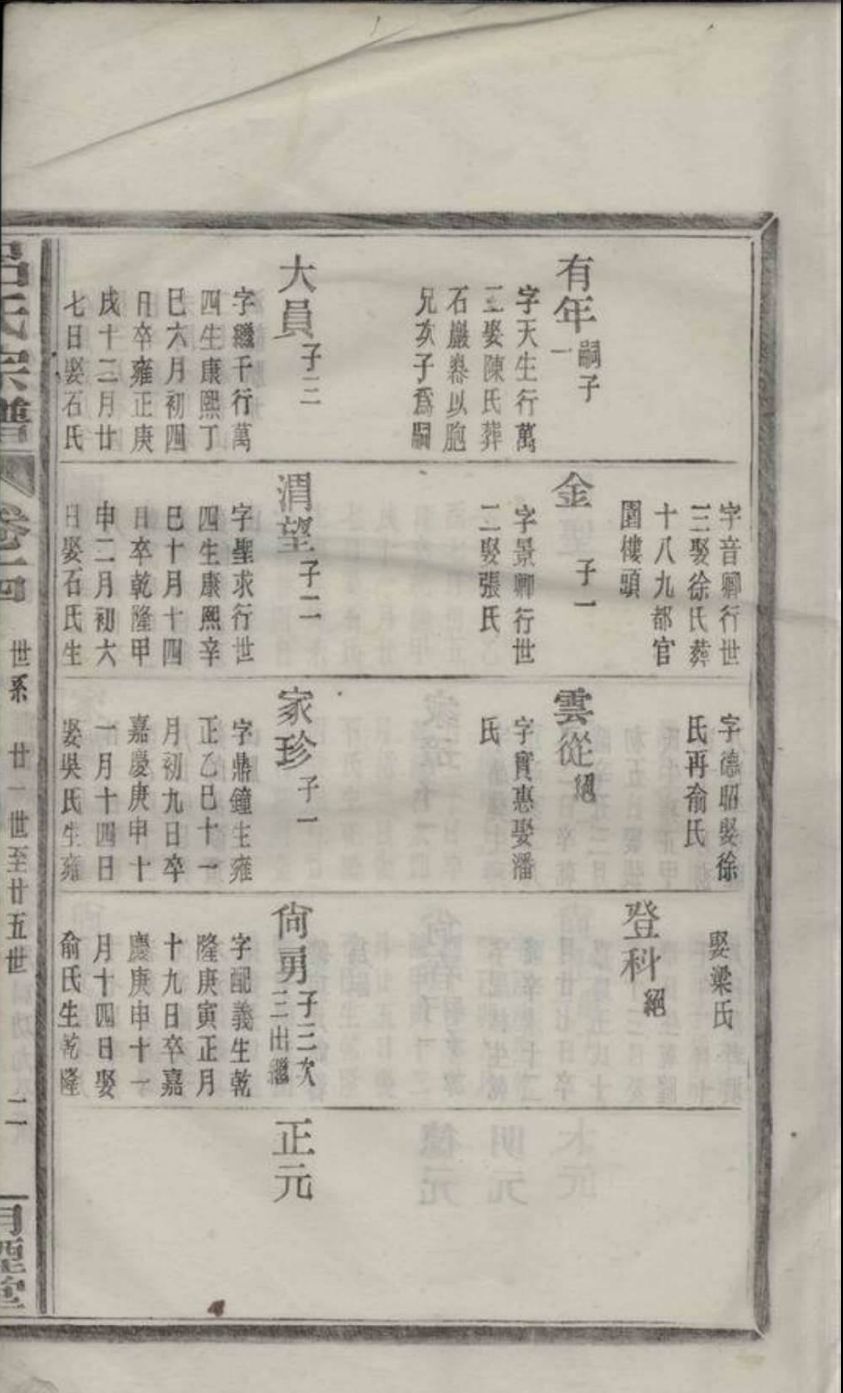 有年 嗣子一
字天生行萬
三娶陳氏葬
石巖桊以胞
兄次子爲嗣
大員 子三
字繼千行萬
四生康熙丁
巳六月初四
日卒雍正庚
戌十二月廿
七日娶石氏
字音卿行世
三娶徐氏葬
十八九都官
園樓頭
金 子一
字景卿行世
二娶張氏
渭望 子二
字聖求行世
四生康熙辛
巳十月十四
日卒乾隆甲
申二月初六
日娶石氏生
字德昭娶徐
氏再俞氏
雲從 絕
字實惠娶潘
氏
家珍 子一
字鼎鐘生雍
正乙巳十一
月初九日卒
嘉慶庚申十
一月十四日
娶吳氏生雍
娶梁氏
登科 絕
尙勇 子三次三出繼
字配義生乾
隆庚寅正月
十九日卒嘉
慶庚申十一
月十四日娶
俞氏生乾隆
正元
呂氏宗譜 卷十四 世系 廿一世至廿五世 二